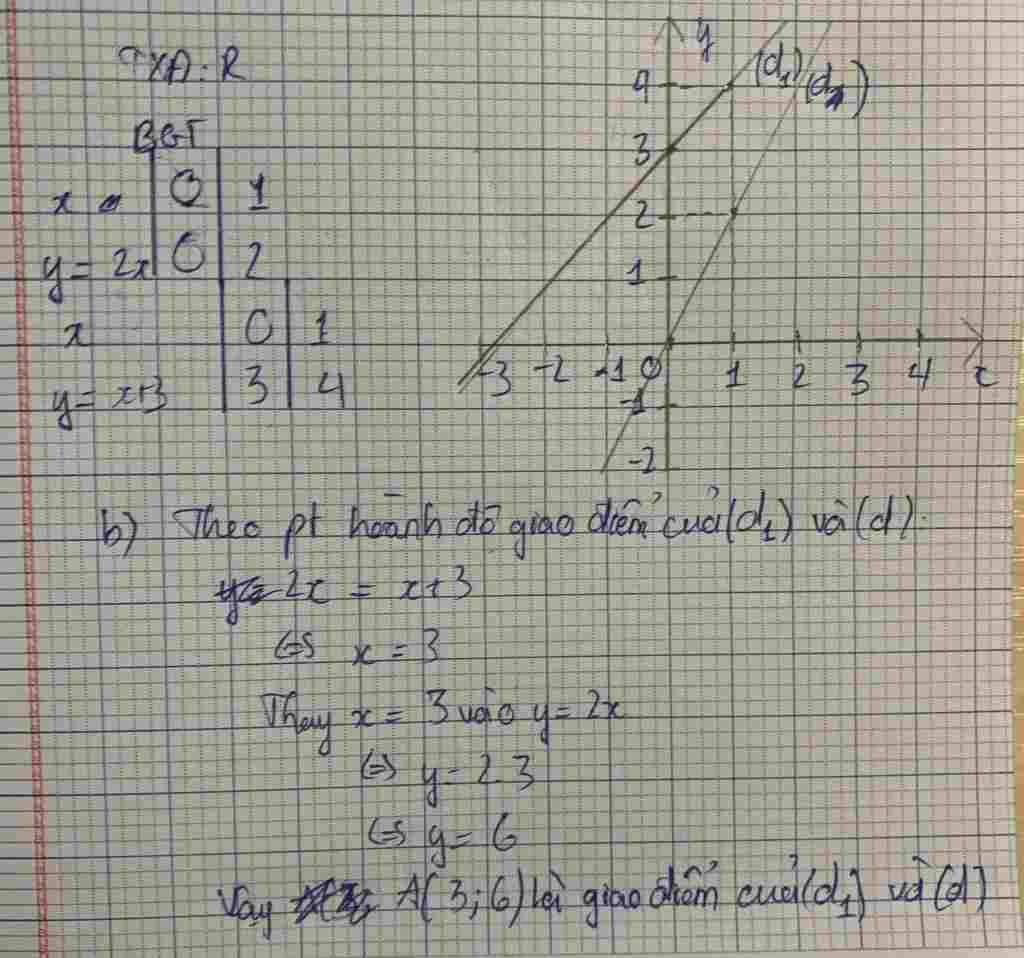 TXĐ: R
BGT
x 0 1
y = 2x 0 2
x 0 1
y = x+3 3 4
y
(d1)
4
3
2
1
-3 -2 -1 0 1 2 3 4 x
-1
-2
b) Theo pt hoành độ giao điểm của (d1) và (d).
2x = x+3
<=> x = 3
Thay x = 3 vào y = 2x
<=> y = 2.3
<=> y = 6
Vậy A(3;6) là giao điểm của (d1) và (d)